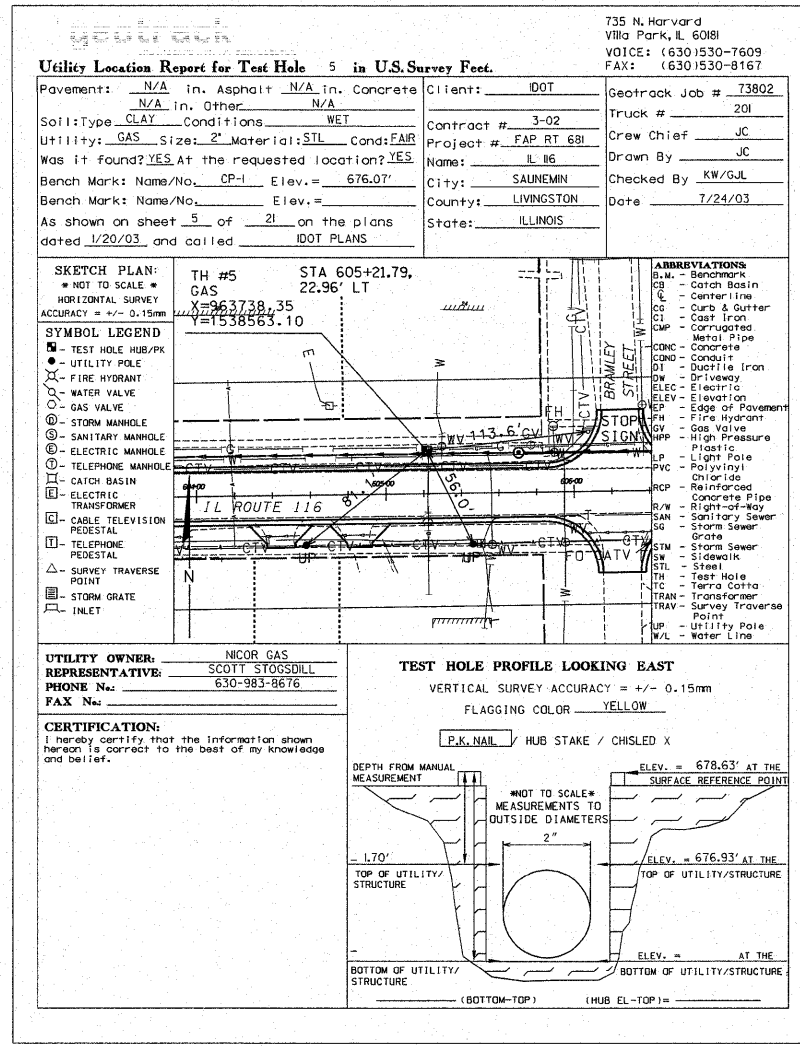 geotrack
735 N. Harvard
Villa Park, IL 60181
VOICE: (630)530-7609
FAX: (630)530-8167
Utility Location Report for Test Hole 5 in U.S. Survey Feet.
Pavement: N/A in. Asphalt N/A in. Concrete
N/A in. Other N/A
Soil:Type CLAY Conditions WET
Utility: GAS Size: 2" Material: STL Cond: FAIR
Was it found? YES At the requested location? YES
Bench Mark: Name/No. CP-1 Elev.= 676.07'
Bench Mark: Name/No. Elev.=
As shown on sheet 5 of 21 on the plans
dated 1/20/03 and called IDOT PLANS
Client: IDOT
Contract # 3-02
Project # FAP RT 681
Name: IL 116
City: SAUNEMIN
County: LIVINGSTON
State: ILLINOIS
Geotrack Job # 73802
Truck # 201
Crew Chief JC
Drawn By JC
Checked By KW/GJL
Date 7/24/03
SKETCH PLAN:
* NOT TO SCALE *
HORIZONTAL SURVEY
ACCURACY = +/- 0.15mm
SYMBOL LEGEND
- TEST HOLE HUB/PK
- UTILITY POLE
- FIRE HYDRANT
- WATER VALVE
- GAS VALVE
D - STORM MANHOLE
S - SANITARY MANHOLE
E - ELECTRIC MANHOLE
T - TELEPHONE MANHOLE
- CATCH BASIN
E - ELECTRIC
TRANSFORMER
C - CABLE TELEVISION
PEDESTAL
T - TELEPHONE
PEDESTAL
- SURVEY TRAVERSE
POINT
- STORM GRATE
- INLET
TH #5
GAS
X=963738.35
Y=1538563.10
STA 605+21.79,
22.96' LT
BRAMLEY
STREET
CTV
G
W
E
FH
STOP
SIGN
113.6'
WV
GV
WV
G
W
CTV
604+00
605+00
606+00
IL ROUTE 116
56.0'
CTV
CTV
UP
UP
WV
CTV
FO
ATV
N
W
ABBREVIATIONS:
B.M. - Benchmark
CB - Catch Basin
℄ - Centerline
CG - Curb & Gutter
CI - Cast Iron
CMP - Corrugated
Metal Pipe
CONC - Concrete
COND - Conduit
DI - Ductile Iron
DW - Driveway
ELEC - Electric
ELEV - Elevation
EP - Edge of Pavement
FH - Fire Hydrant
GV - Gas Valve
HPP - High Pressure
Plastic
LP - Light Pole
PVC - Polyvinyl
Chloride
RCP - Reinforced
Concrete Pipe
R/W - Right-of-Way
SAN - Sanitary Sewer
SG - Storm Sewer
Grate
STM - Storm Sewer
SW - Sidewalk
STL - Steel
TH - Test Hole
TC - Terra Cotta
TRAN - Transformer
TRAV - Survey Traverse
Point
UP - Utility Pole
W/L - Water Line
UTILITY OWNER: NICOR GAS
REPRESENTATIVE: SCOTT STOGSDILL
PHONE No.: 630-983-8676
FAX No.:
CERTIFICATION:
I hereby certify that the information shown
hereon is correct to the best of my knowledge
and belief.
TEST HOLE PROFILE LOOKING EAST
VERTICAL SURVEY ACCURACY = +/- 0.15mm
FLAGGING COLOR YELLOW
P.K. NAIL / HUB STAKE / CHISLED X
DEPTH FROM MANUAL
MEASUREMENT
ELEV. = 678.63' AT THE
SURFACE REFERENCE POINT
*NOT TO SCALE*
MEASUREMENTS TO
OUTSIDE DIAMETERS
2"
- 1.70'
TOP OF UTILITY/
STRUCTURE
ELEV. = 676.93' AT THE
TOP OF UTILITY/STRUCTURE
-
BOTTOM OF UTILITY/
STRUCTURE
ELEV. = AT THE
BOTTOM OF UTILITY/STRUCTURE
(BOTTOM-TOP) (HUB EL-TOP)=